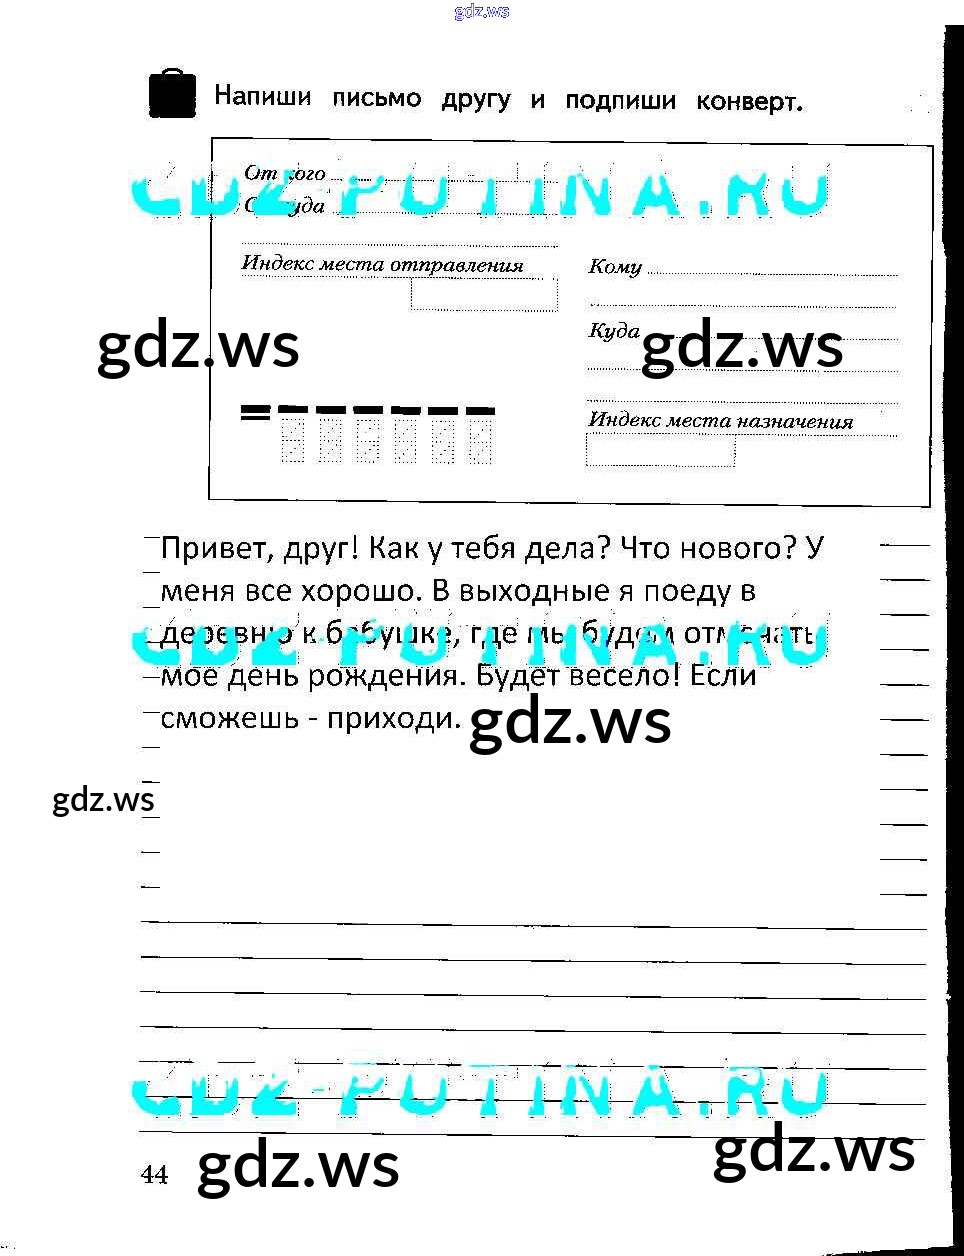 gdz.ws
Напиши письмо другу и подпиши конверт.
От кого
GDZ-PUTINA.RU
Откуда
Индекс места отправления
Кому
gdz.ws
Куда
gdz.ws
Индекс места назначения
Привет, друг! Как у тебя дела? Что нового? У
меня все хорошо. В выходные я поеду в
деревню к бабушке, где мы будем отмечать
GDZ-PUTINA.RU
мое день рождения. Будет весело! Если
сможешь - приходи.
gdz.ws
gdz.ws
GDZ-PUTINA.RU
gdz.ws
44
gdz.ws